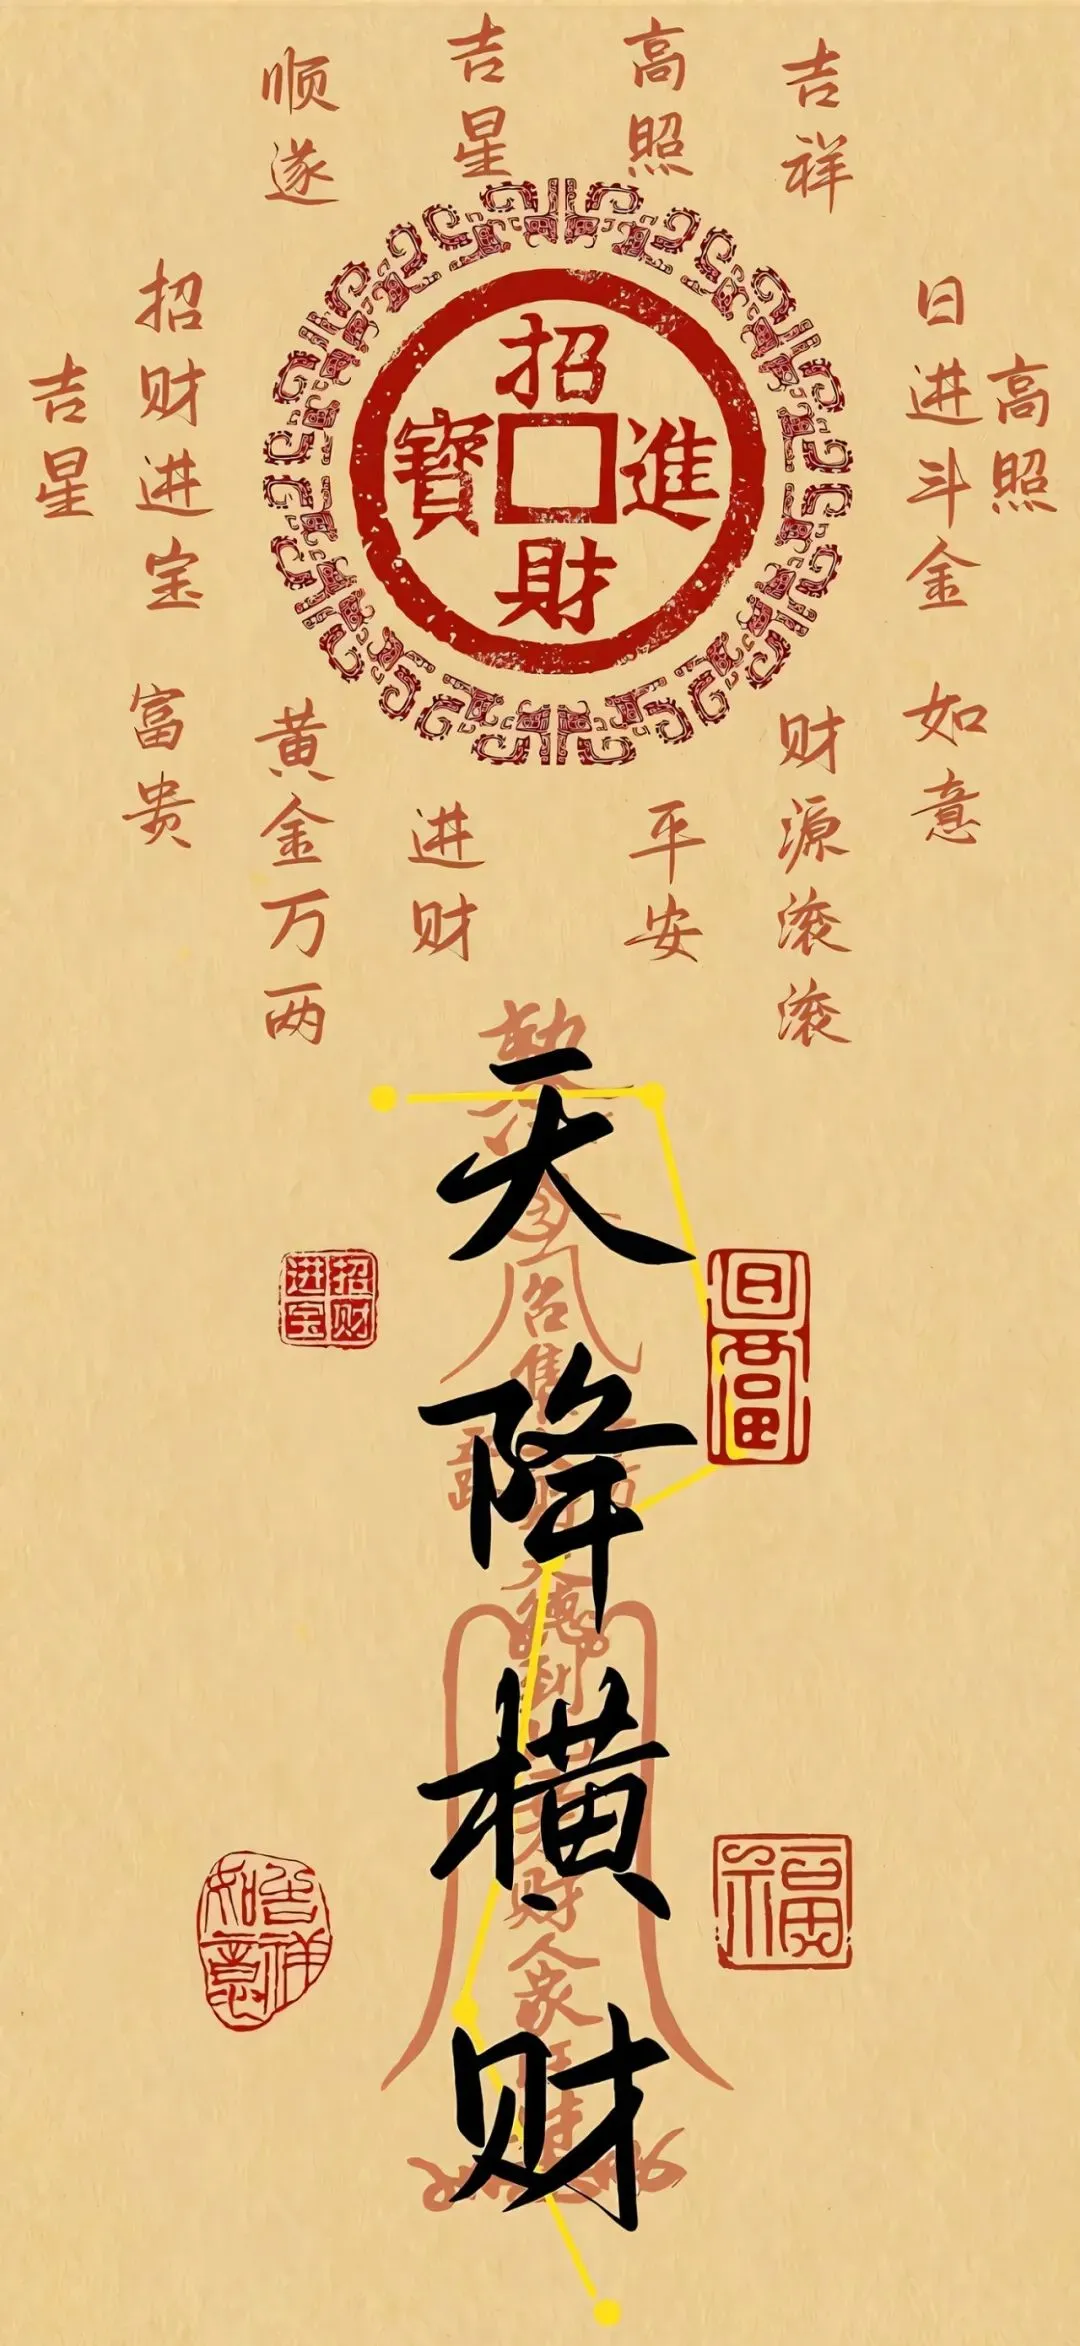 顺遂
吉星
高照
吉祥
招财进宝
吉星
日进斗金
高照
招財進寶
富贵
黄金万两
进财
平安
财源滚滚
如意
天降横财
招财进宝
日富
吉祥如意
福